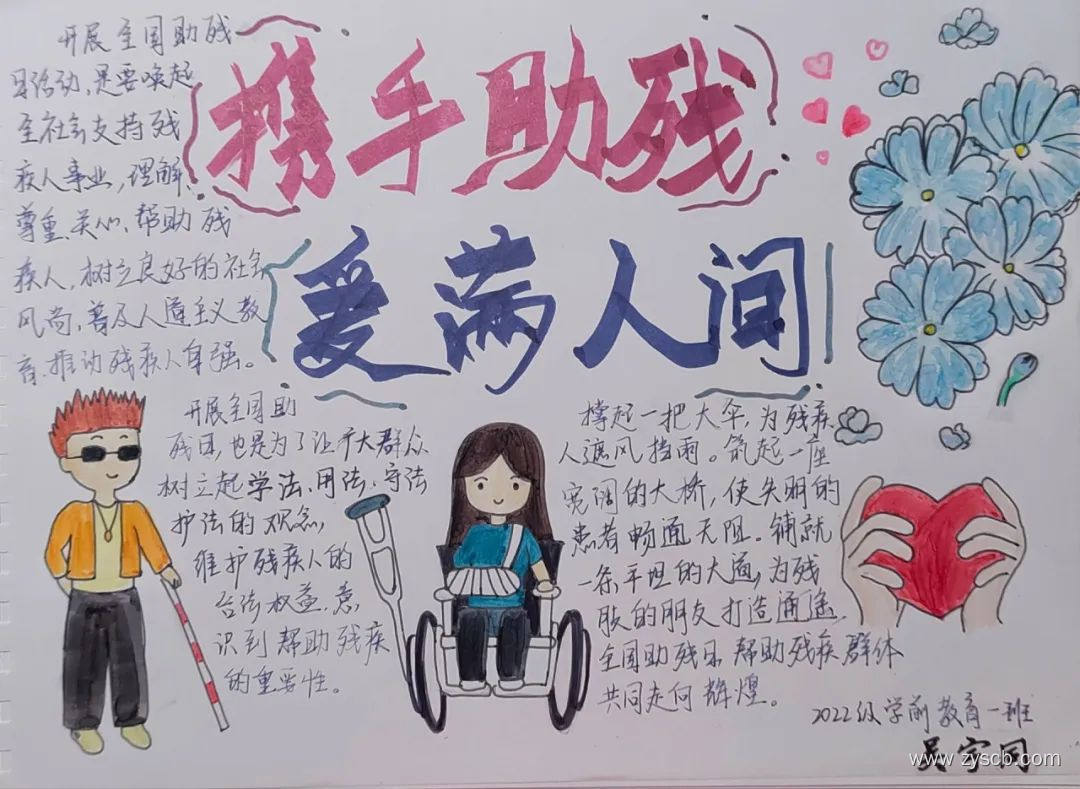 携手助残
爱满人间
开展全国助残
日活动,是要唤起
全社会支持残
疾人事业,理解、
尊重、关心、帮助残
疾人,树立良好的社会
风尚,普及人道主义教
育,推动残疾人自强。
开展全国助
残日,也是为了让广大群众
树立起学法、用法、守法
护法的观念,
维护残疾人的
合法权益,意
识到帮助残疾
的重要性。
撑起一把大伞,为残疾
人遮风挡雨。筑起一座
宽阔的大桥,使失明的
患者畅通无阻。铺就
一条平坦的大道,为残
肢的朋友打造通途,
全国助残日帮助残疾群体
共同走向辉煌。
2022级学前教育一班
吴宇同
www.zyscb.com